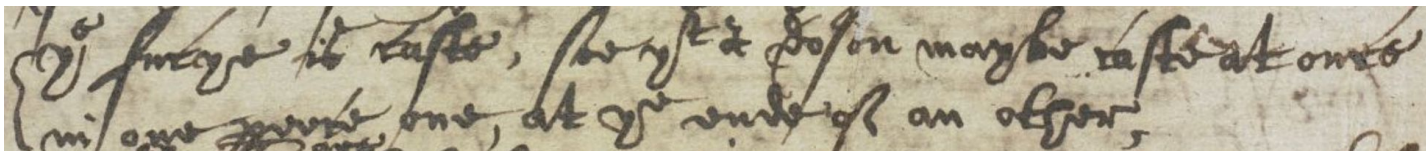 ye is caste, soe yt a doson maybe caste at once
in one peece one, at ye ende of an other,